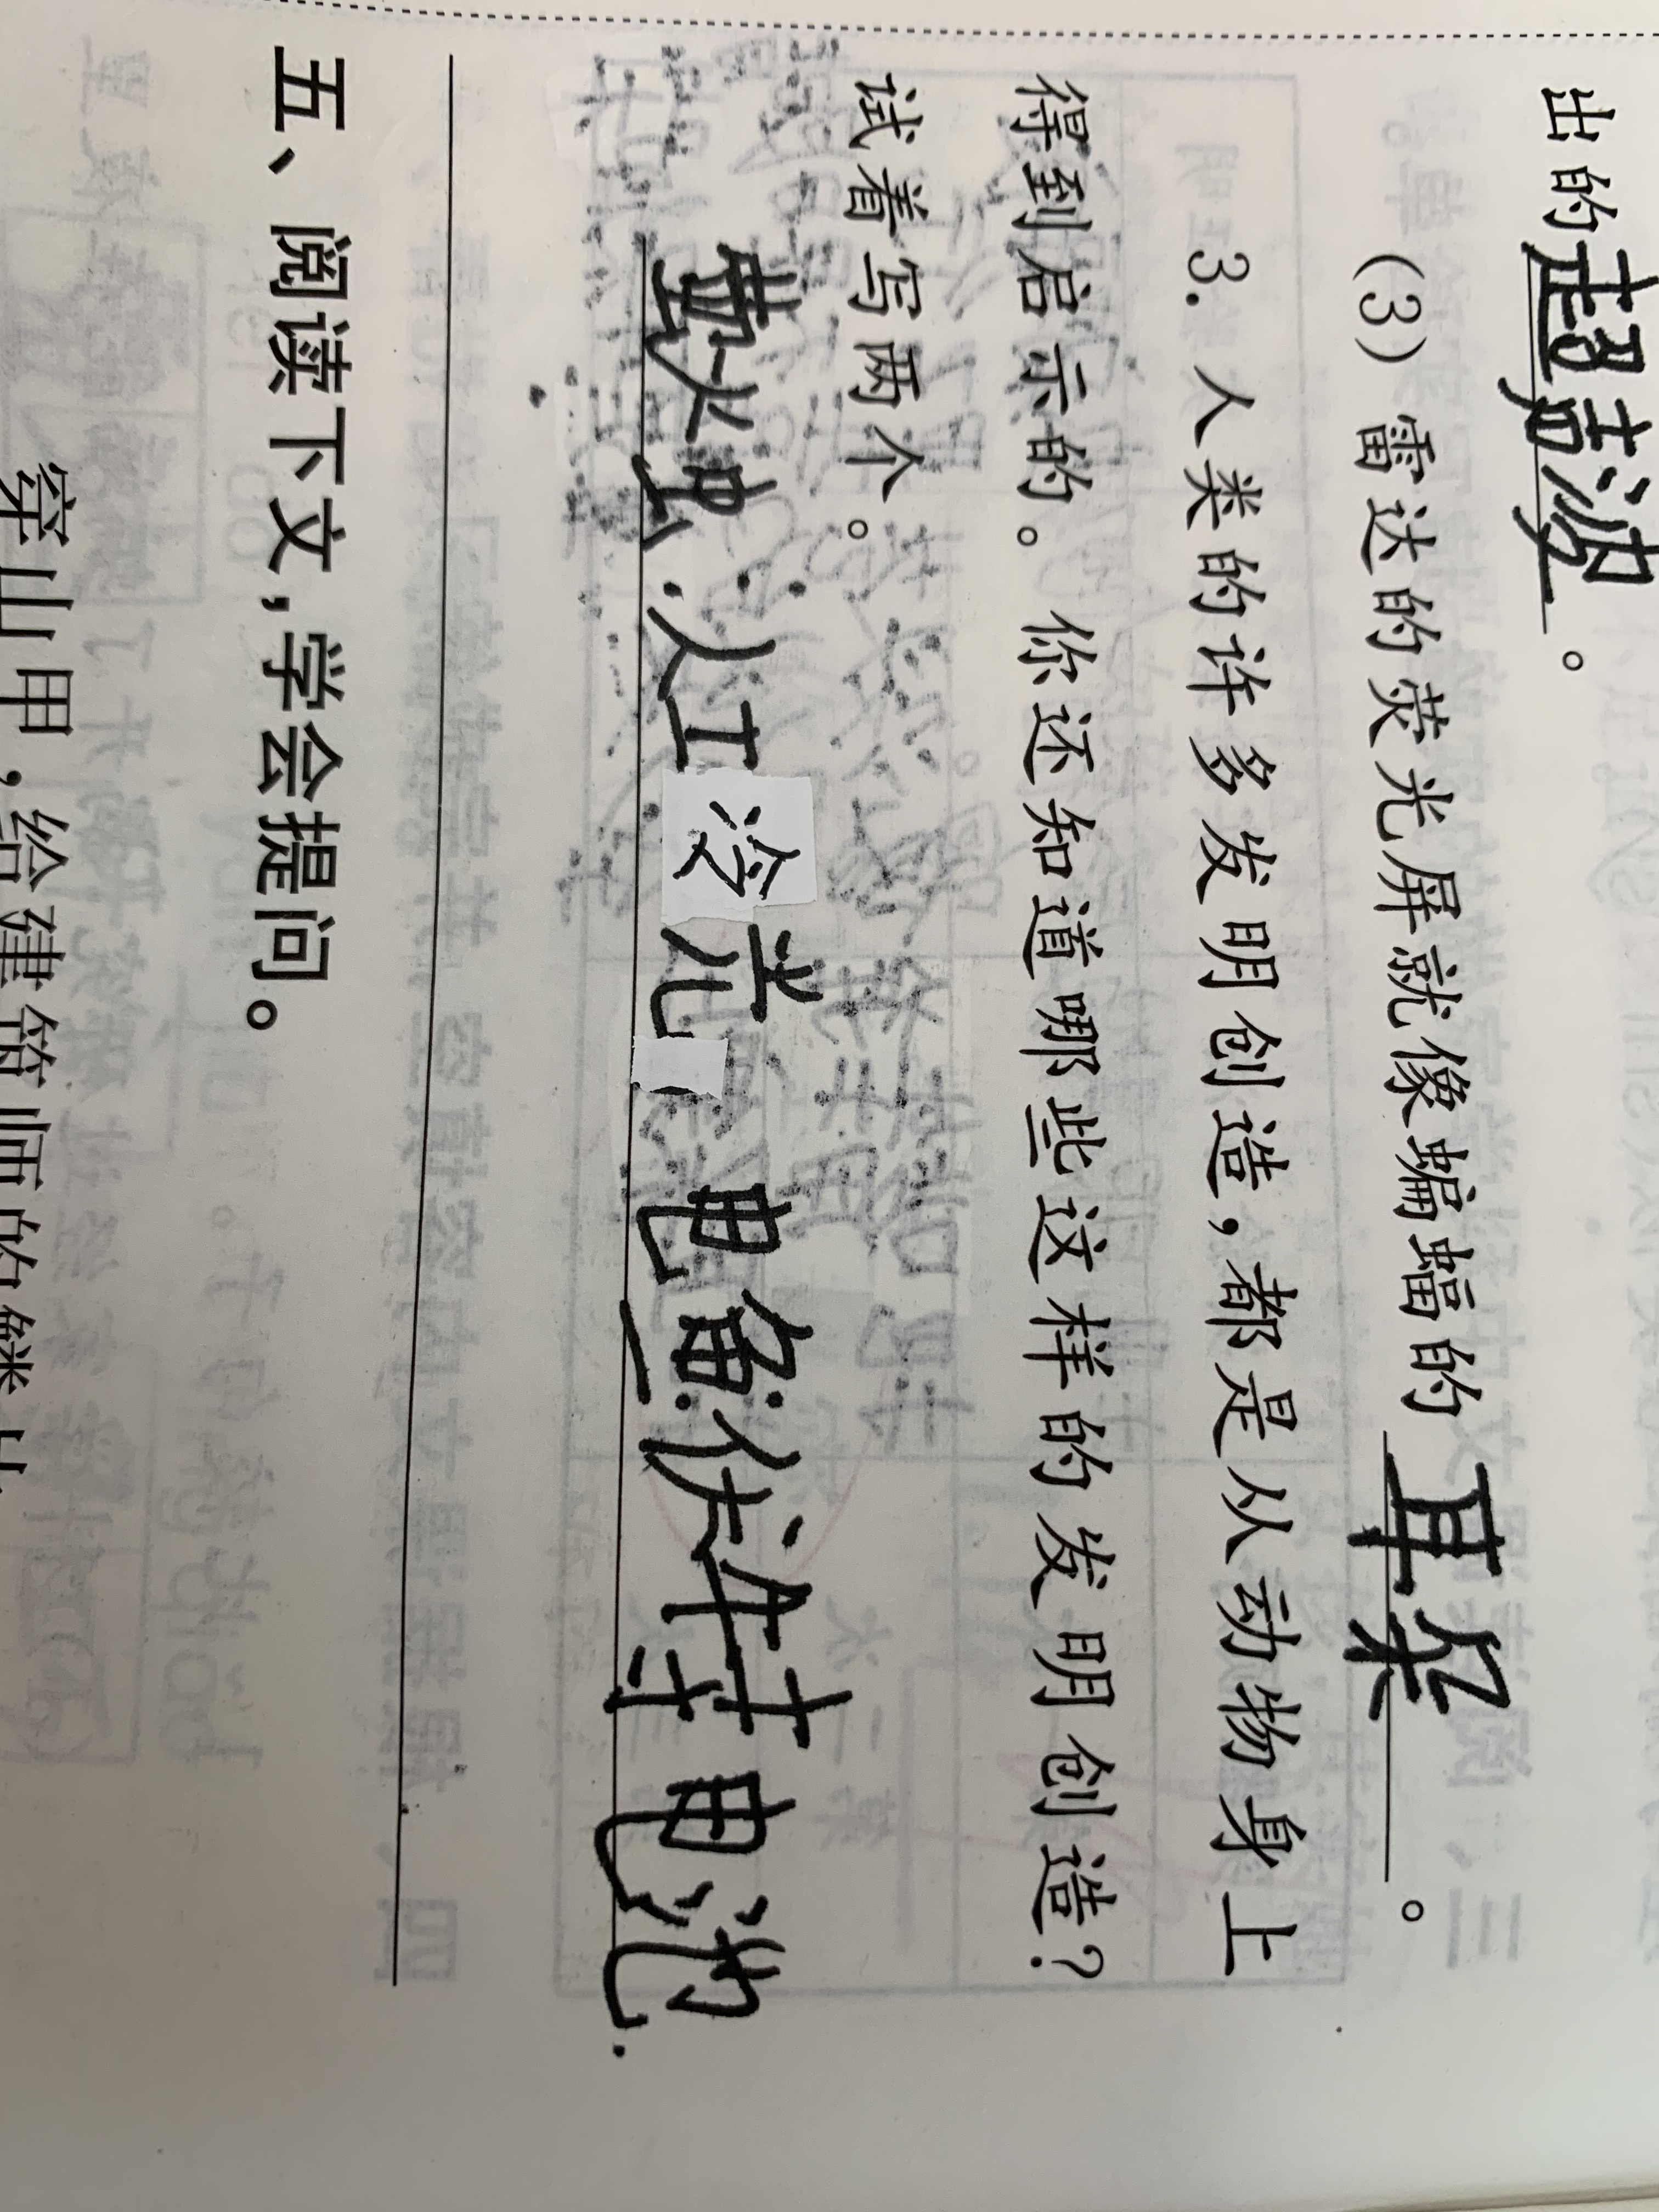 出的超声波。
(3) 雷达的荧光屏就像蝙蝠的耳朵。
3. 人类的许多发明创造,都是从动物身上
得到启示的。你还知道哪些这样的发明创造?
试着写两个。
萤火虫:人工冷光 电鱼:伏特电池.
五、阅读下文,学会提问。
穿山甲,给建筑师的